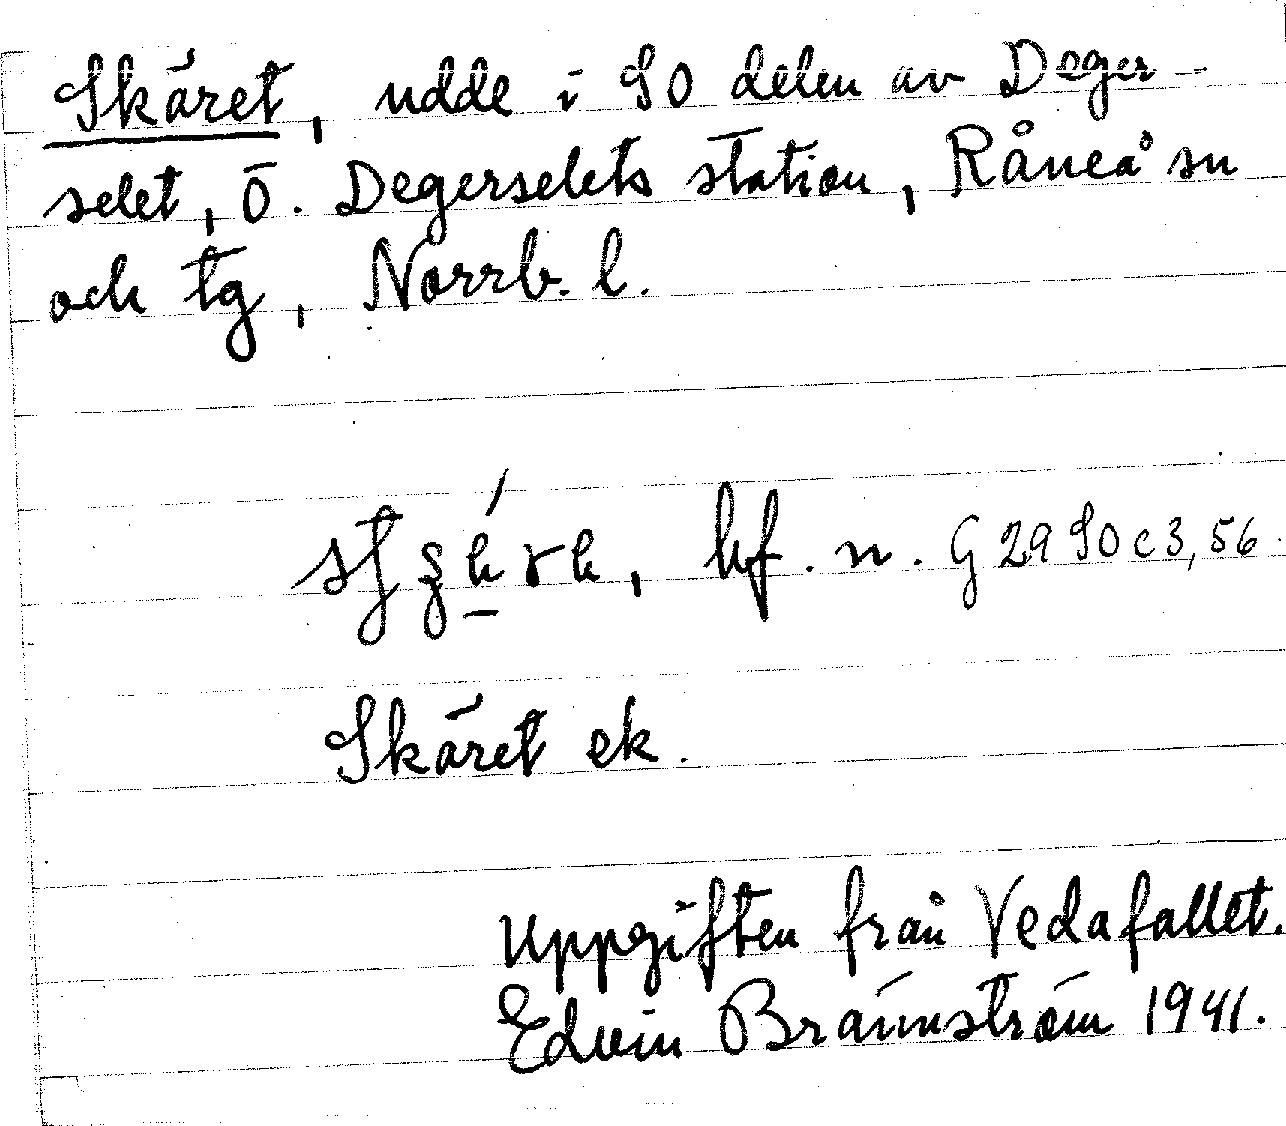 Skäret, udde i SO delen av Deger-
selet, Ö. Degerselets station, Råneå sn
och tg, Norrb. l.
bf. n. G 29 SO c 3, 56.
Skäret ek.
Uppgiften från Vedafallet.
Edvin Brännström 1941.